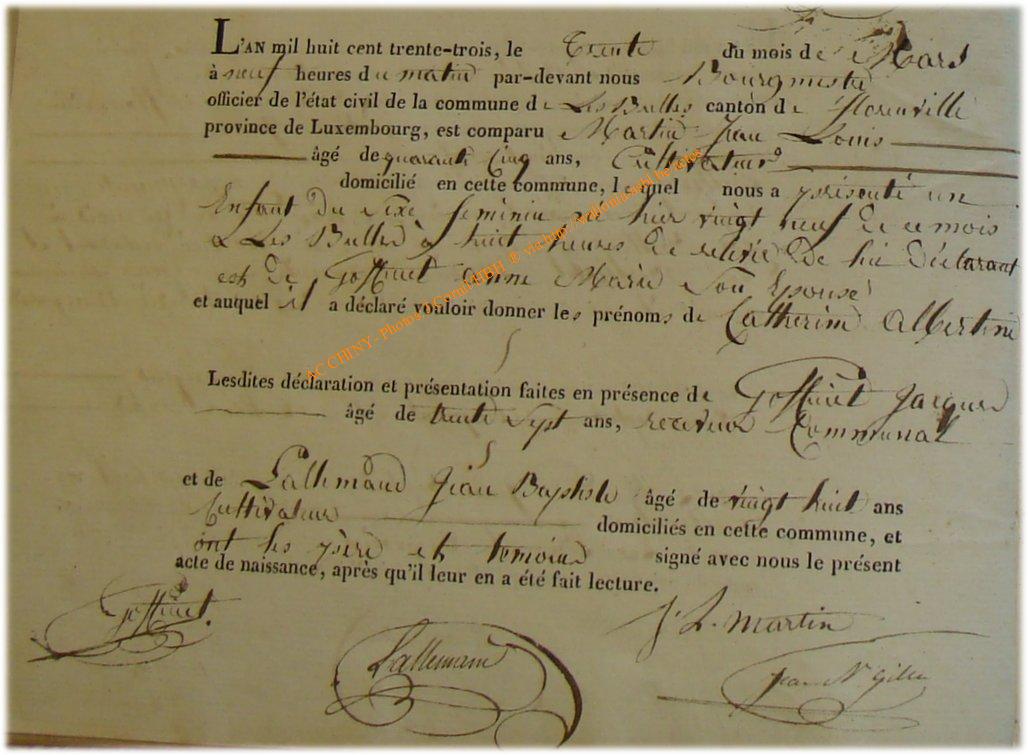 L'AN mil huit cent trente-trois, le Trente du mois de Mars
à neuf heures du matin par-devant nous Bourgmestre
officier de l'état civil de la commune de Les Bulles canton de florenville
province de Luxembourg, est comparu Martin Jean Louis
âgé de quarante Cinq ans, Cultivateur
domicilié en cette commune, lequel nous a présenté un
Enfant du sexe feminin né hier vingt neuf de ce mois
a Les Bulles à huit heures de de lui déclarant
et de Goffinet anne Marie Son Epouse
et auquel il a déclaré vouloir donner les prénoms de Catherine albertine
Lesdites déclaration et présentation faites en présence de Goffinet Jacques
âgé de trente Sept ans, receveur Communal
et de Lallemand Jean Baptiste âgé de vingt huit ans
Cultivateur domiciliés en cette commune, et
ont les père et temoins signé avec nous le présent
acte de naissance, après qu'il leur en a été fait lecture.
Goffinet.
Lallemand
J. L. Martin
Jean N Gille
AC CHINY - Photos